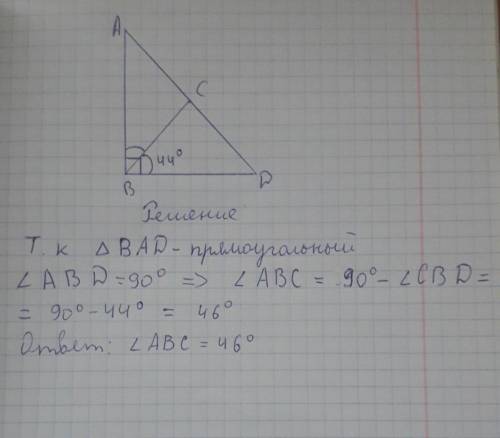 A
C
44°
B
D
Решение
Т. к △ BAD - прямоугольный
∠ ABD = 90° => ∠ ABC = 90° - ∠CBD =
= 90° - 44° = 46°
Ответ: ∠ABC = 46°